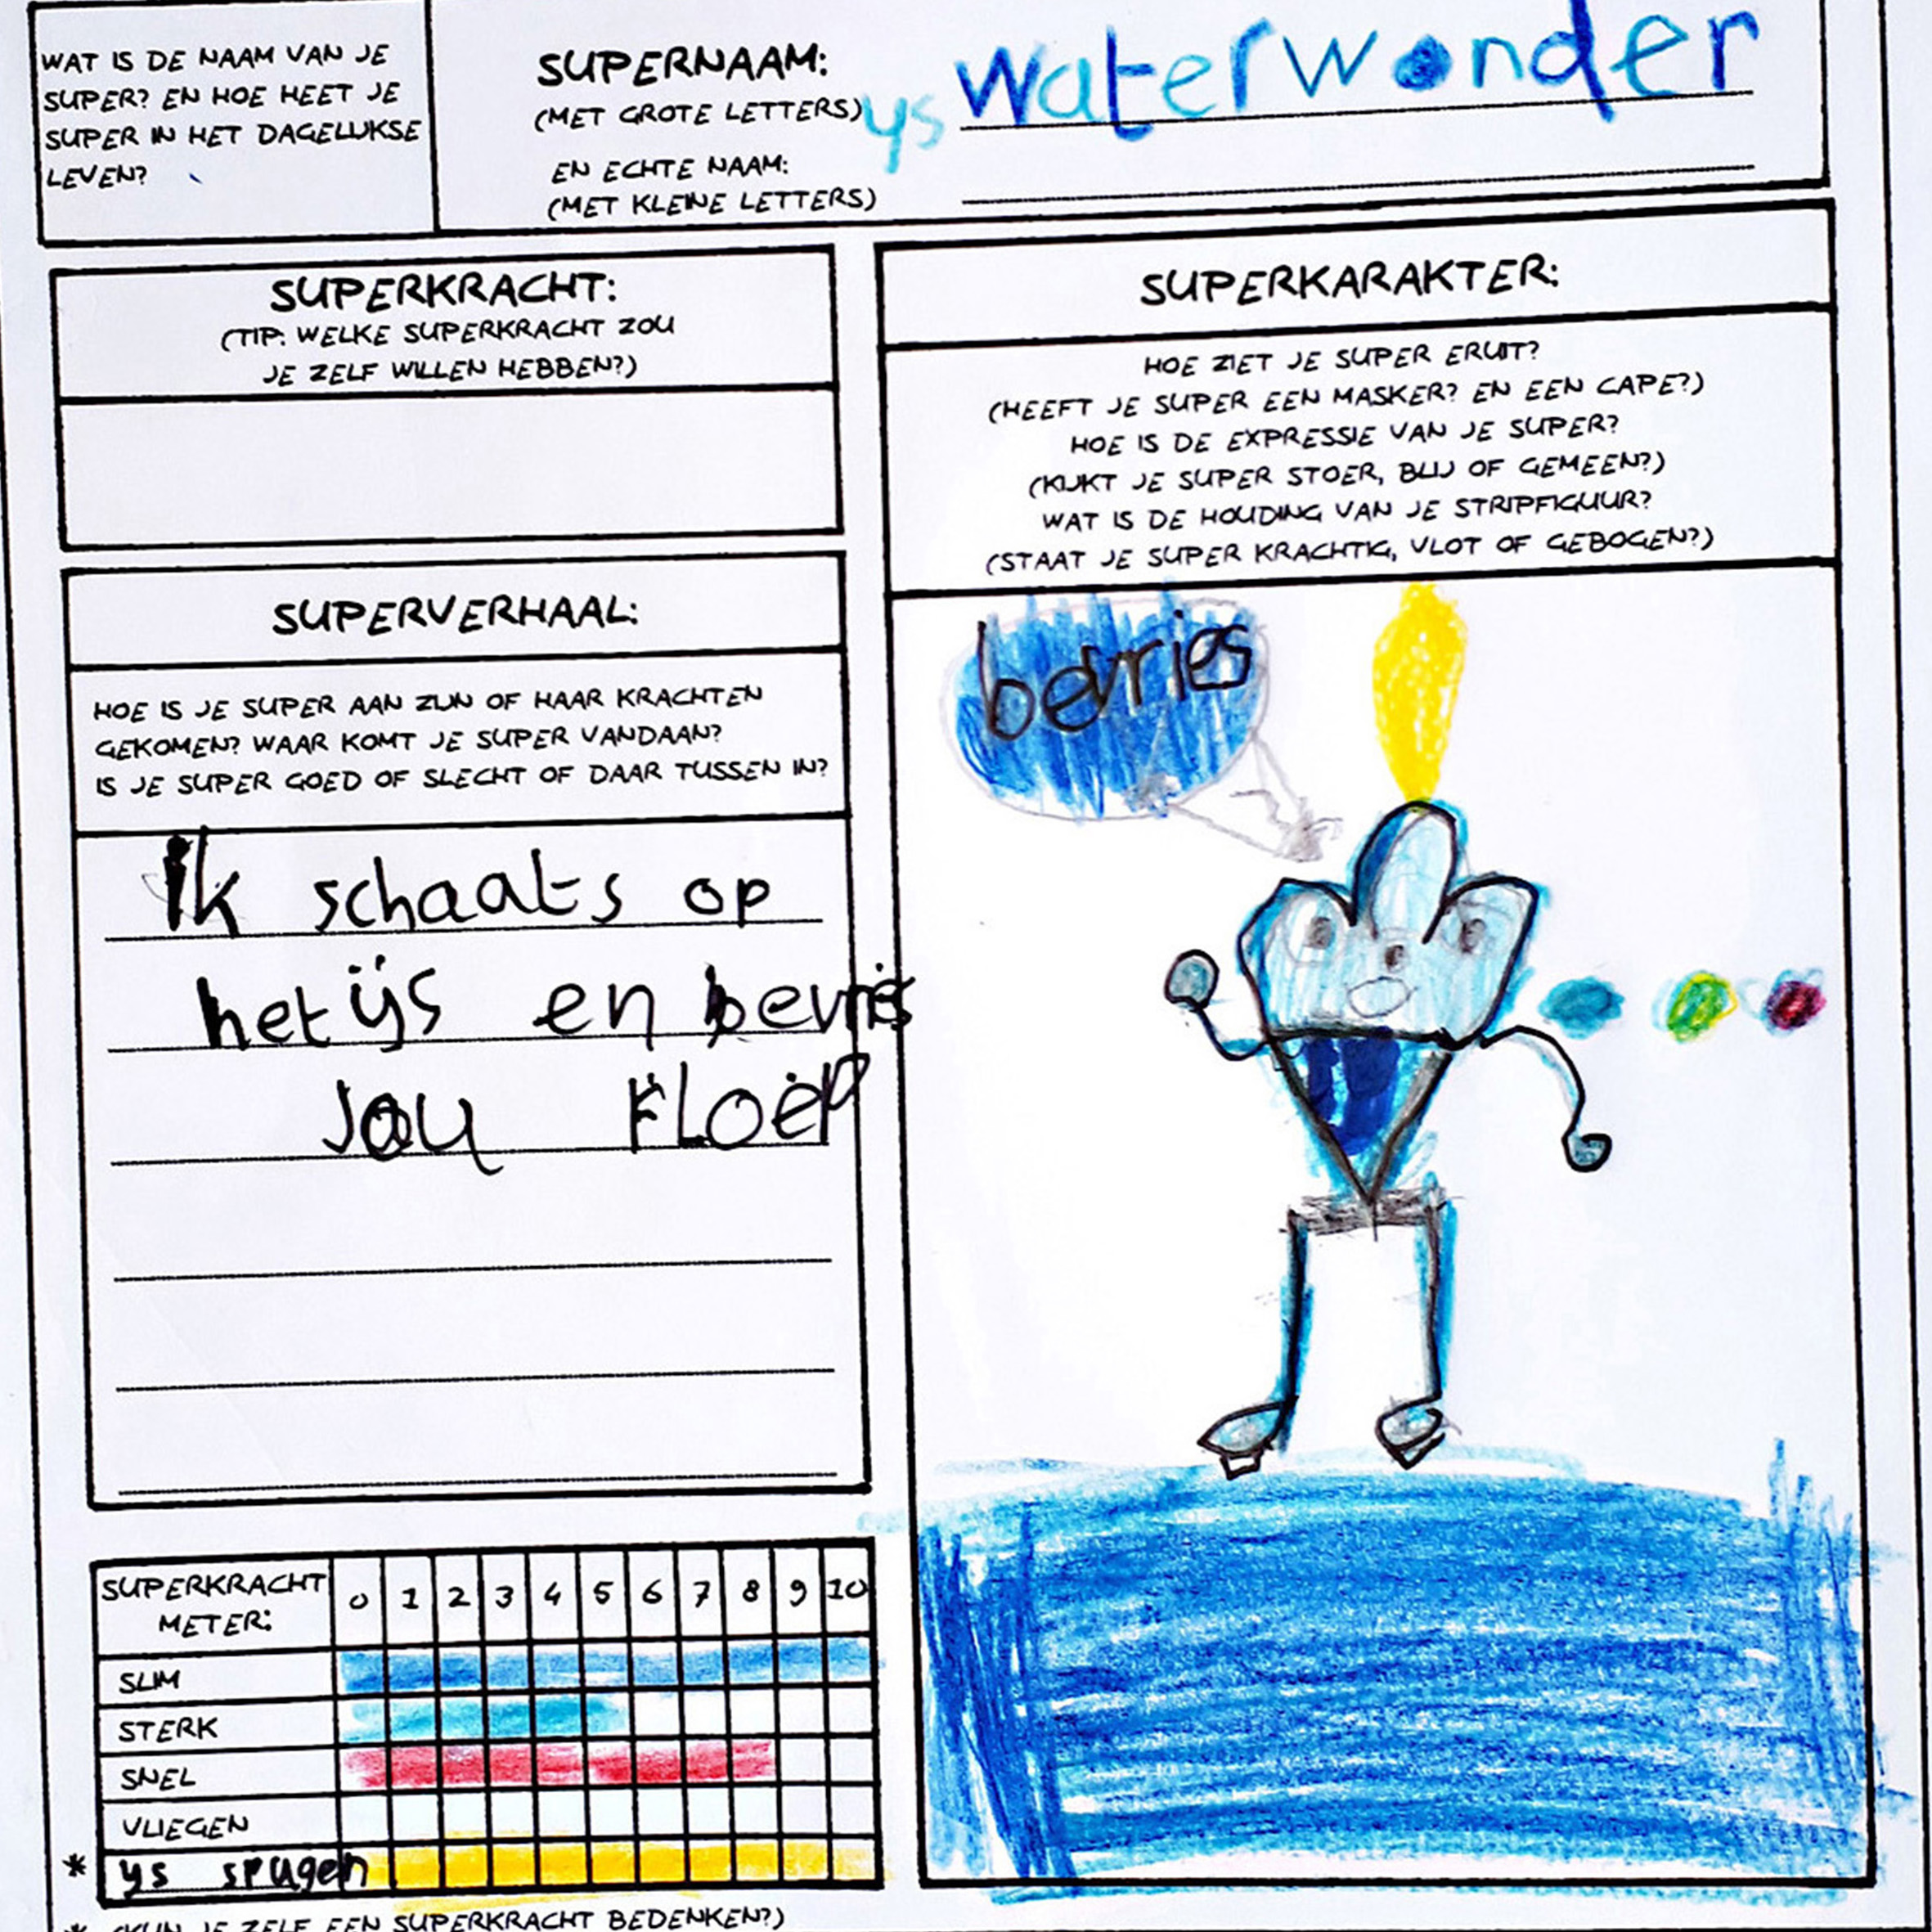 WAT IS DE NAAM VAN JE
SUPER? EN HOE HEET JE
SUPER IN HET DAGELIJKSE
LEVEN?
SUPERNAAM:
(MET GROTE LETTERS)
ys waterwonder
EN ECHTE NAAM:
(MET KLEINE LETTERS)
SUPERKRACHT:
(TIP: WELKE SUPERKRACHT ZOU
JE ZELF WILLEN HEBBEN?)
SUPERVERHAAL:
HOE IS JE SUPER AAN ZIJN OF HAAR KRACHTEN
GEKOMEN? WAAR KOMT JE SUPER VANDAAN?
IS JE SUPER GOED OF SLECHT OF DAAR TUSSEN IN?
Ik schaats op
het ijs en bevries
jou FLOEP
SUPERKRACHT
METER:
0 1 2 3 4 5 6 7 8 9 10
SLIM
STERK
SNEL
VLIEGEN
* ys spugen
* (KUN JE ZELF EEN SUPERKRACHT BEDENKEN?)
SUPERKARAKTER:
HOE ZIET JE SUPER ERUIT?
(HEEFT JE SUPER EEN MASKER? EN EEN CAPE?)
HOE IS DE EXPRESSIE VAN JE SUPER?
(KIJKT JE SUPER STOER, BLIJ OF GEMEEN?)
WAT IS DE HOUDING VAN JE STRIPFIGUUR?
(STAAT JE SUPER KRACHTIG, VLOT OF GEBOGEN?)
bevries